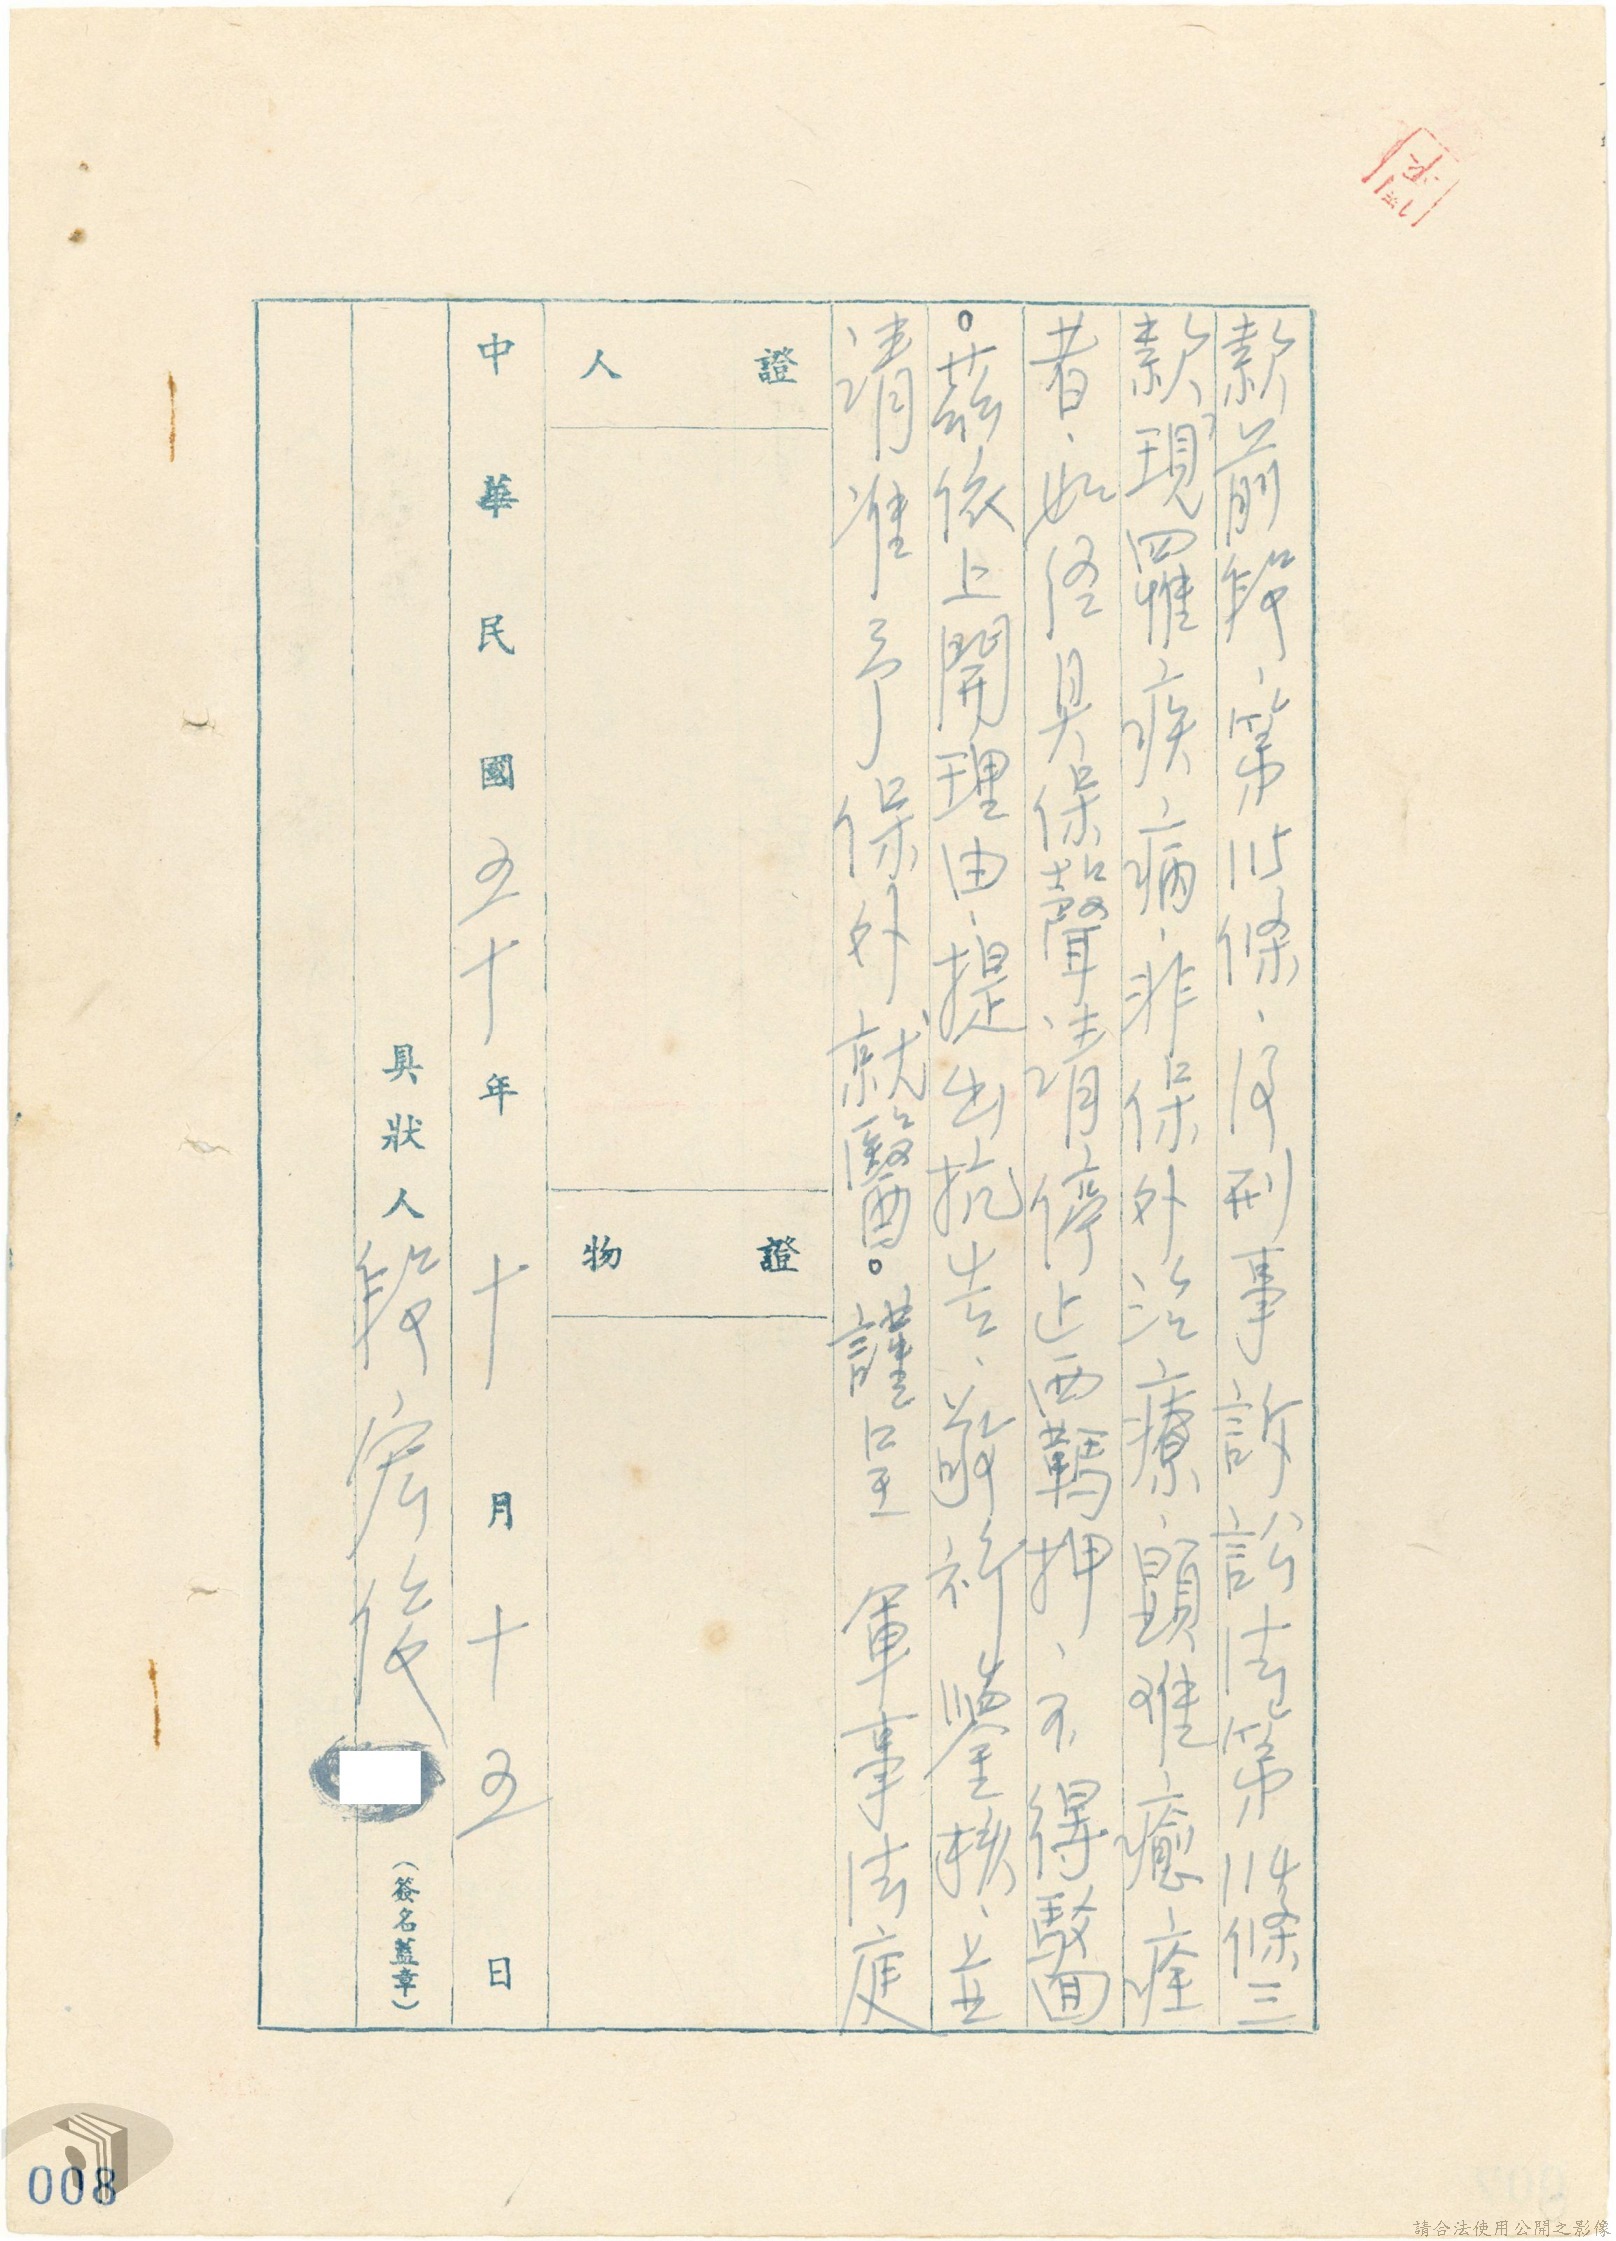 款前段、第115條、及刑事訴訟法第114條三
款、現罹疾病、非保外治療、顯难癒痊
者、如經具保聲請停止而羈押、不得駁回
。茲依上開理由、提出抗告、敬祈鑒核、並
請准予保外就醫。謹呈 軍事法庭
證人
證物
中華民國五十年十月十五日
具狀人 段宏俊 (簽名蓋章)
008
請合法使用公開之影像